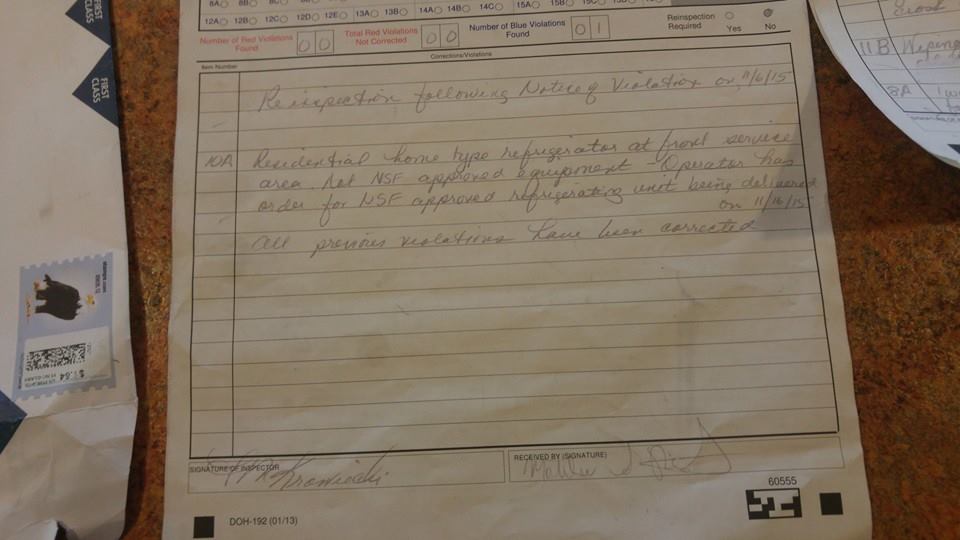 8A 8B
12A 12B 12C 12D 12E 13A 13B 14A 14B 14C 15A 15B
Number of Red Violations Found 0 0 Total Red Violations Not Corrected 0 0 Number of Blue Violations Found 0 1 Reinspection Required Yes No
Item Number Corrections/Violations
Reinspection following Notice of Violation on 11/6/15
10A Residential home type refrigerator at front service
area. Not NSF approved equipment - Operator has
order for NSF approved refrigerating unit being delivered
on 11/16/15
All previous violations have been corrected
SIGNATURE OF INSPECTOR
RECEIVED BY (SIGNATURE)
60555
DOH-192 (01/13)
FIRST CLASS
FIRST CLASS
11B Wiping
8A